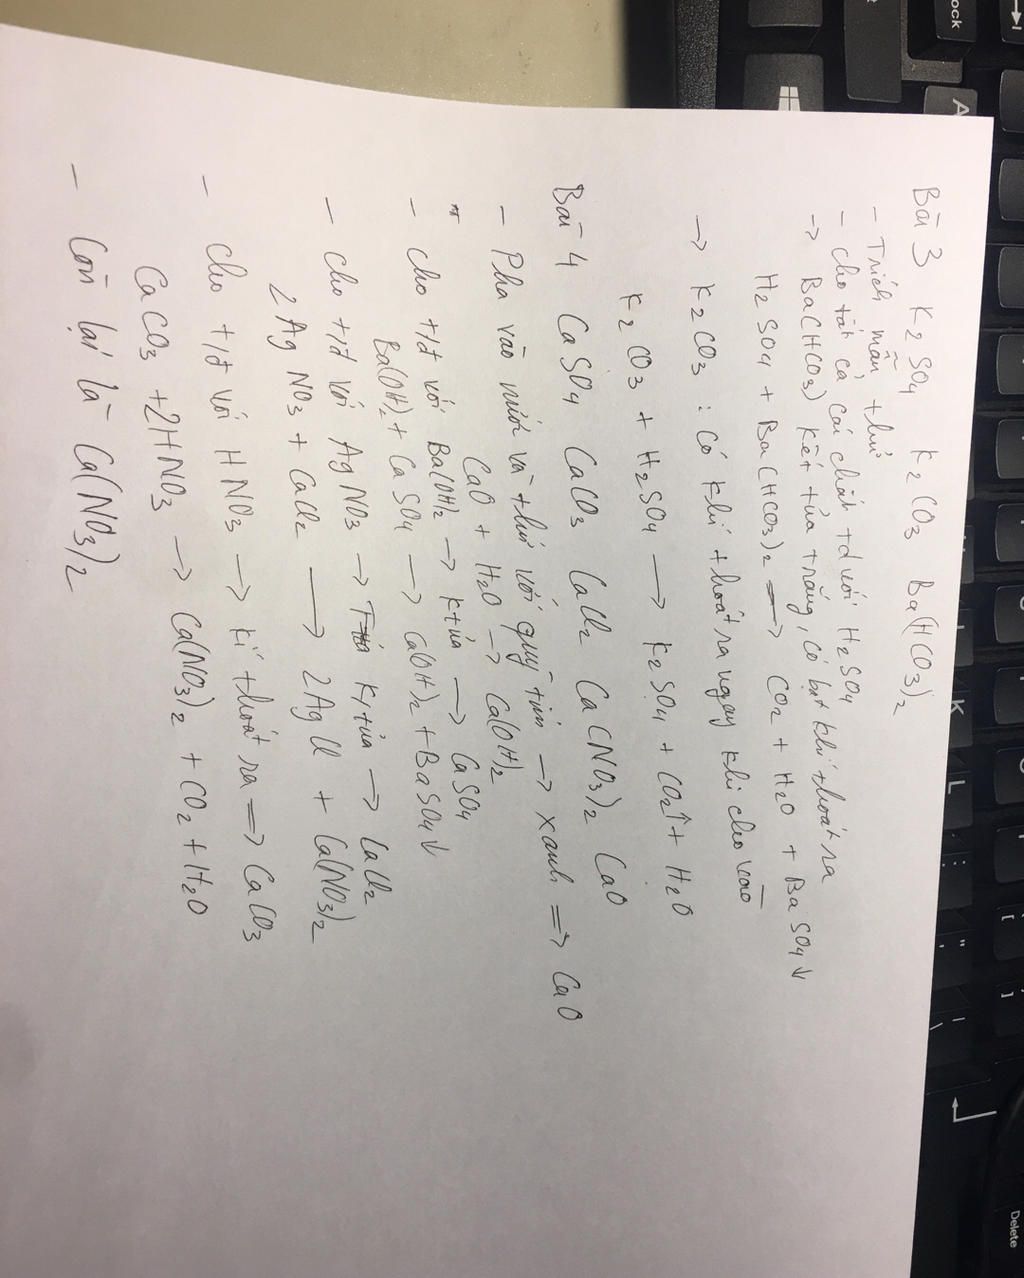 Bài 3 K2SO4 K2CO3 Ba(HCO3)2
- Trích mẫu thử
- Cho tất cả các chất t/d với H2SO4
-> Ba(HCO3) kết tủa trắng, có bọt khí thoát ra
H2SO4 + Ba(HCO3)2 -> CO2 + H2O + BaSO4↓
-> K2CO3 : Có khí thoát ra ngay khi cho vào
K2CO3 + H2SO4 -> K2SO4 + CO2↑ + H2O
Bài 4 CaSO4 CaCO3 CaCl2 Ca(NO3)2 CaO
- Pha vào nước và thử với quỳ tím -> xanh => CaO
CaO + H2O -> Ca(OH)2
- Cho t/d với Ba(OH)2 -> k tủa -> CaSO4
Ba(OH)2 + CaSO4 -> Ca(OH)2 + BaSO4↓
- Cho t/d với AgNO3 -> K, tủa -> CaCl2
2AgNO3 + CaCl2 -> 2AgCl + Ca(NO3)2
- Cho t/d với HNO3 -> kí thoát ra => CaCO3
CaCO3 + 2HNO3 -> Ca(NO3)2 + CO2 + H2O
- Còn lại là Ca(NO3)2
ock
A
K
L
:
;
"
'
[
]
\
Delete